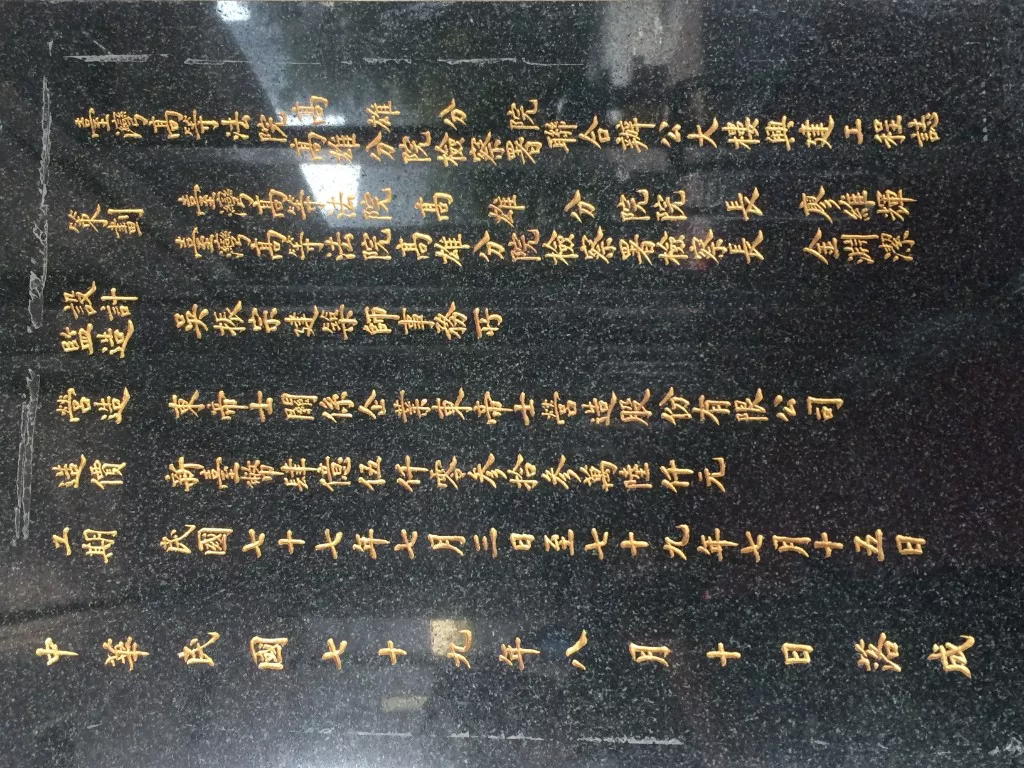 臺灣高等法院高雄分院
高雄分院檢察署聯合辦公大樓興建工程誌
策劃 臺灣高等法院高雄分院院長 廖維輝
臺灣高等法院高雄分院檢察署檢察長 金淵潔
設計監造 吳振宗建築師事務所
營造 東帝士關係企業東帝士營造股份有限公司
造價 新臺幣肆億伍仟零參拾參萬陸仟元
工期 民國七十七年七月三日至七十九年七月十五日
中華民國七十九年八月十日落成